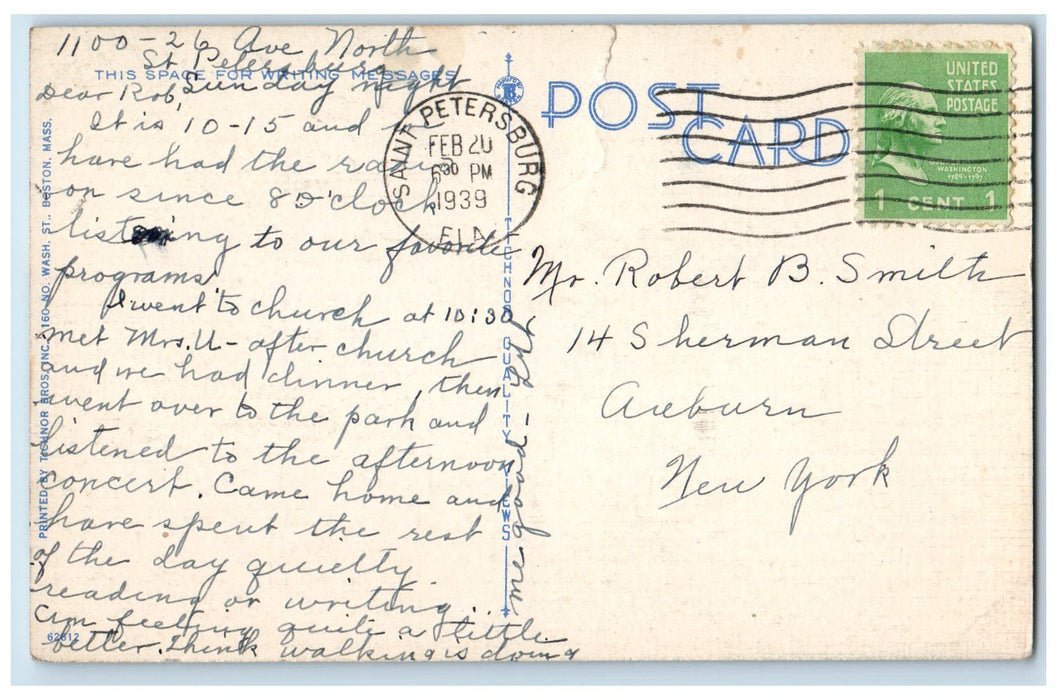 1100-26 Ave North
St Petersburg
THIS SPACE FOR WRITING MESSAGES
Sunday night
Dear Rob,
It is 10-15 and
have had the radio
on since 8 o'clock
listening to our favorite
programs.
I went to church at 10:30
met Mrs. U- after church
and we had dinner, then
went over to the park and
listened to the afternoon
concert. Came home and
have spent the rest
of the day quietly
reading or writing..
Am feeling quite a little
better. Think walking is doing
me good-
PRINTED BY TICHNOR BROS. INC., 160 NO. WASH. ST., BOSTON, MASS.
62612
TICHNOR QUALITY VIEWS
POST CARD
SAINT PETERSBURG
FEB 20
6 30 PM
1939
FLA
UNITED
STATES
POSTAGE
WASHINGTON
1789-1797
1 CENT 1
Mr. Robert B. Smith
14 Sherman Street
Auburn
New York